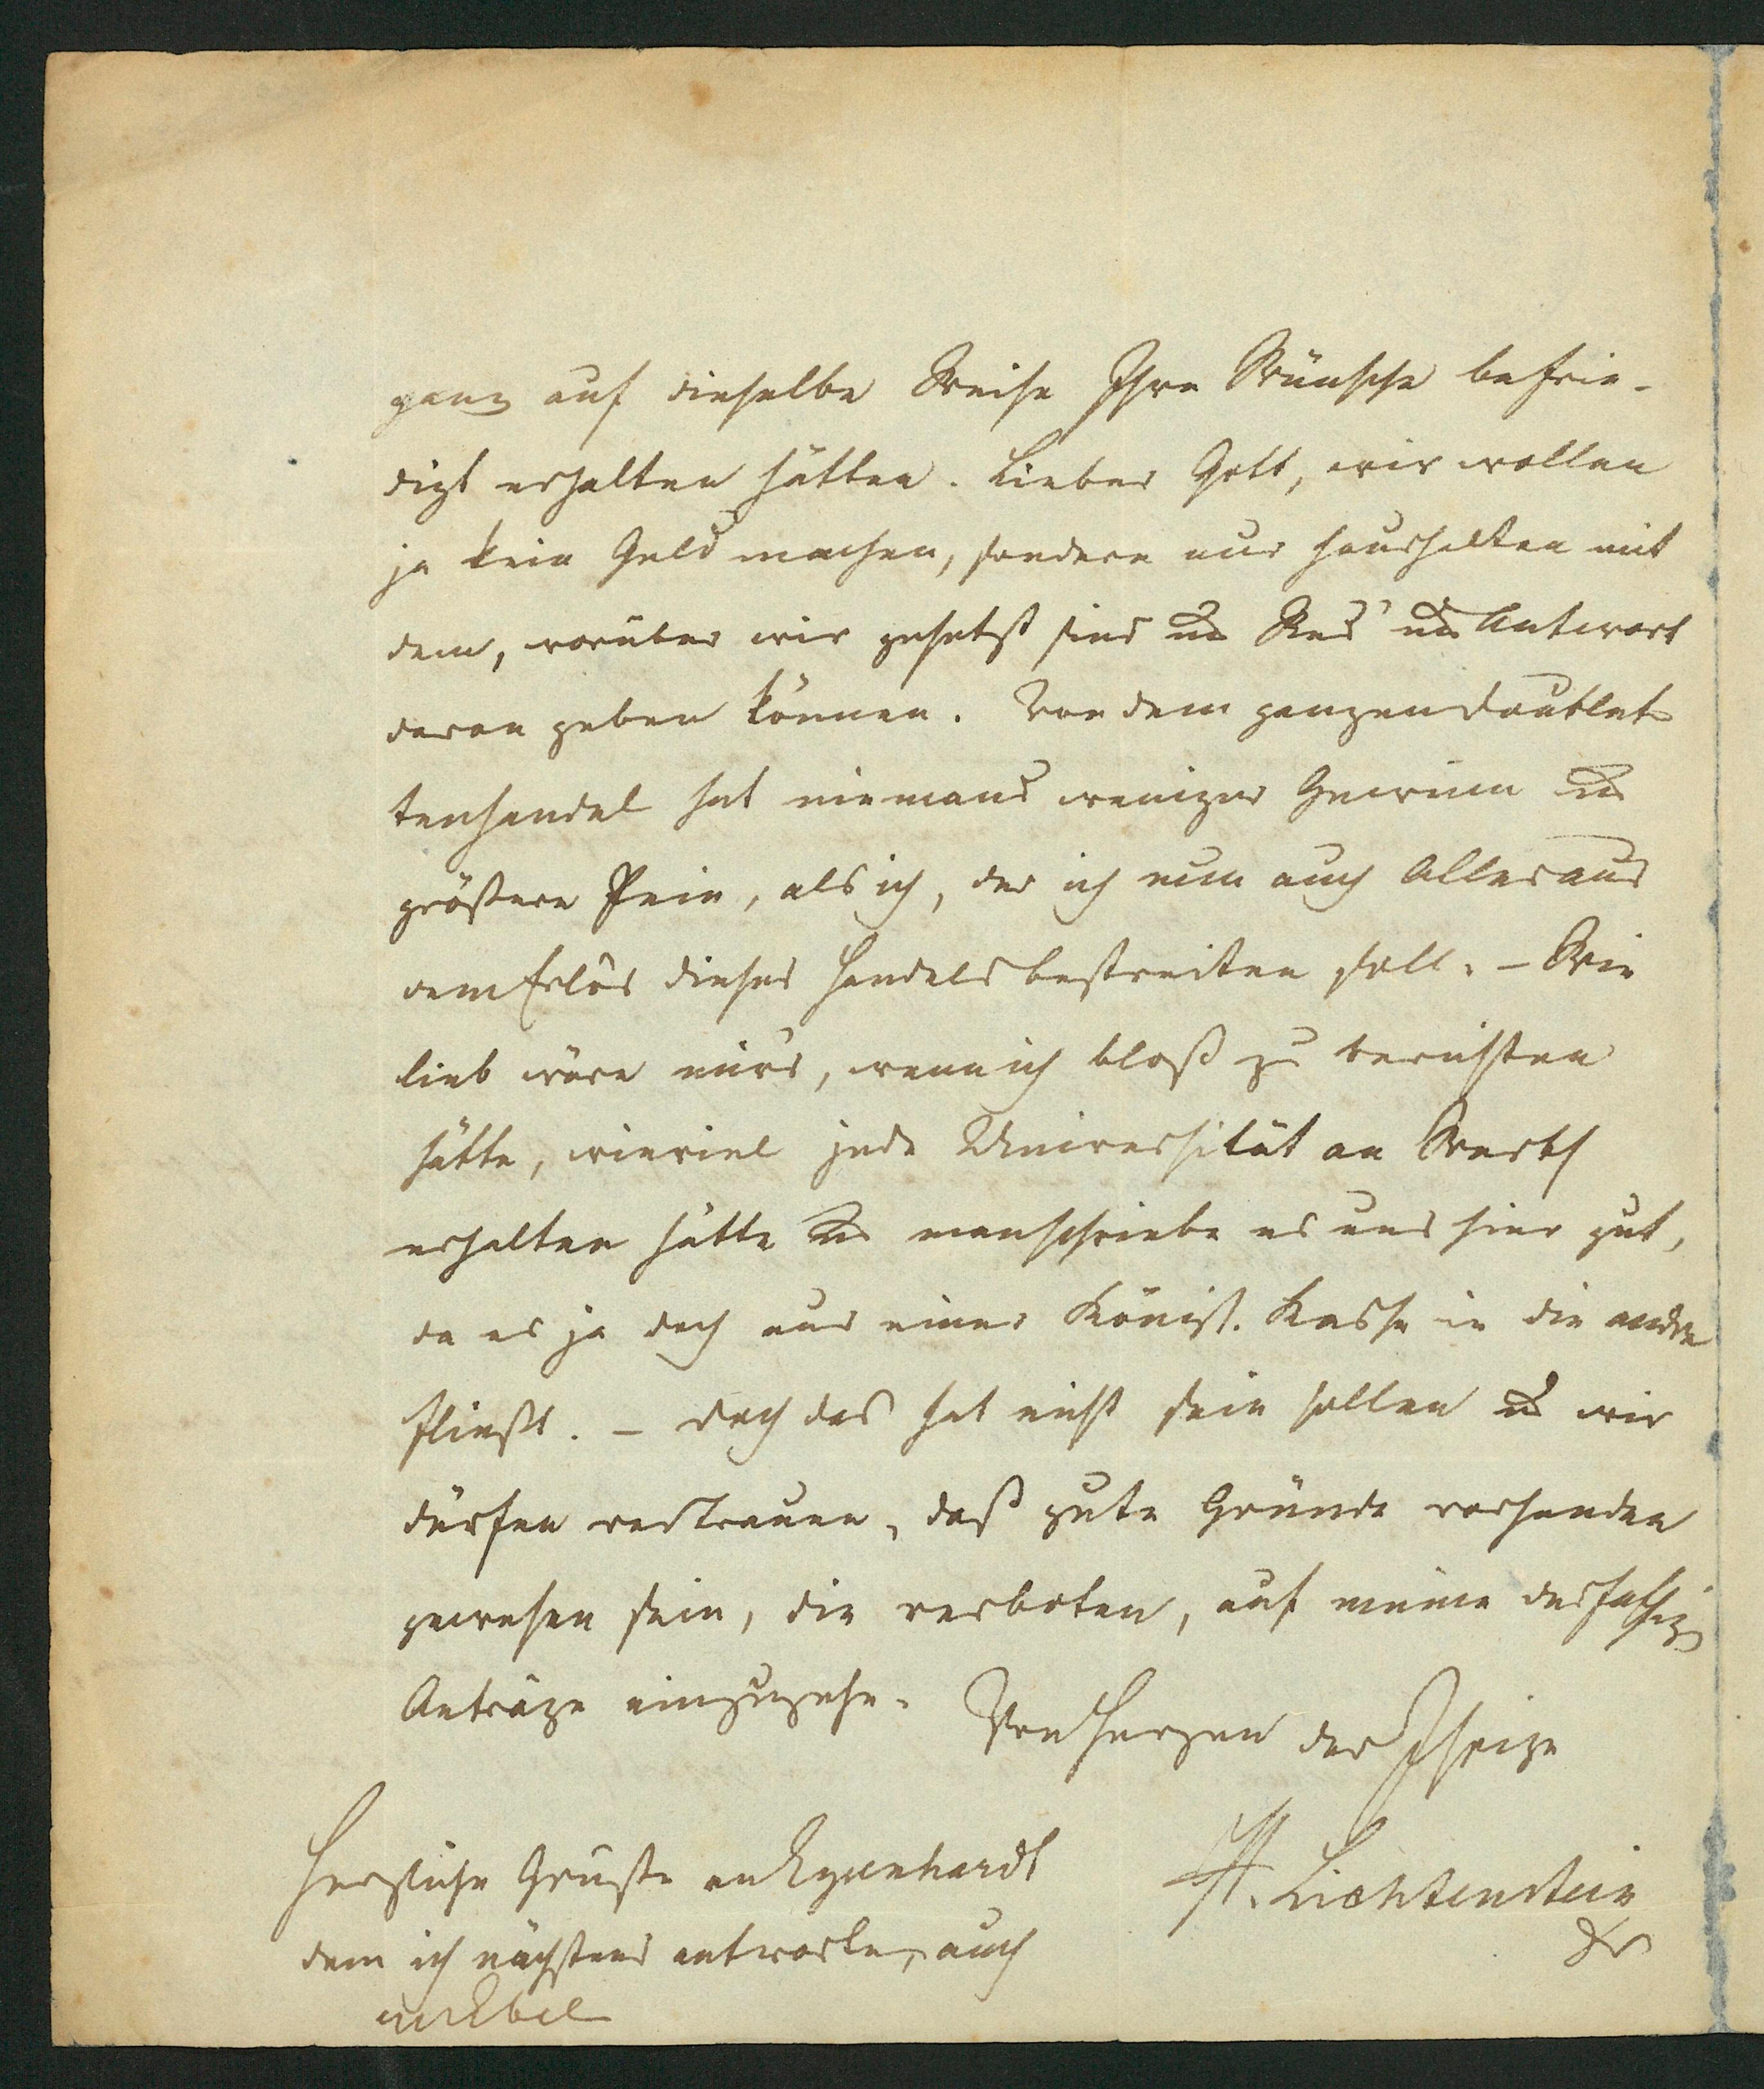 ganz auf dieselbe Weise Ihre Wünsche befrie-
digt erhalten hätten. Lieber Gott, wir wollen
ja kein Geld machen, sondern nur haushalten mit
dem, worüber wir gesetzt sind u Red' u Antwort
davon geben können. Von dem ganzen Doublet
tenhandel hat niemand weniger Gewinn u
größere Pein, als ich, der ich nun auch Alles aus
dem Erlös dieses Handels bestreiten soll. – Wie
lieb wäre mir's, wenn ich bloß zu berichten
hätte, wieviel jede Universität an Werth
erhalten hätte u man schriebe es uns hier gut,
da es ja doch aus einer Königl. Kasse in die andre
fließt. – Doch das hat nicht sein sollen u wir
dürfen vertrauen, daß gute Gründe vorhanden
gewesen sein, die verboten, auf meine desfalsige
Anträge einzugehn.
Von Herzen der Ihrige
H. Lichtenstein
Dr
Herzliche Grüße an
dem ich nächstens antworte, auch